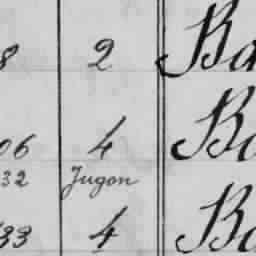 8 2 Ba
06 4 Ba
32 Jugon
33 4 Ba